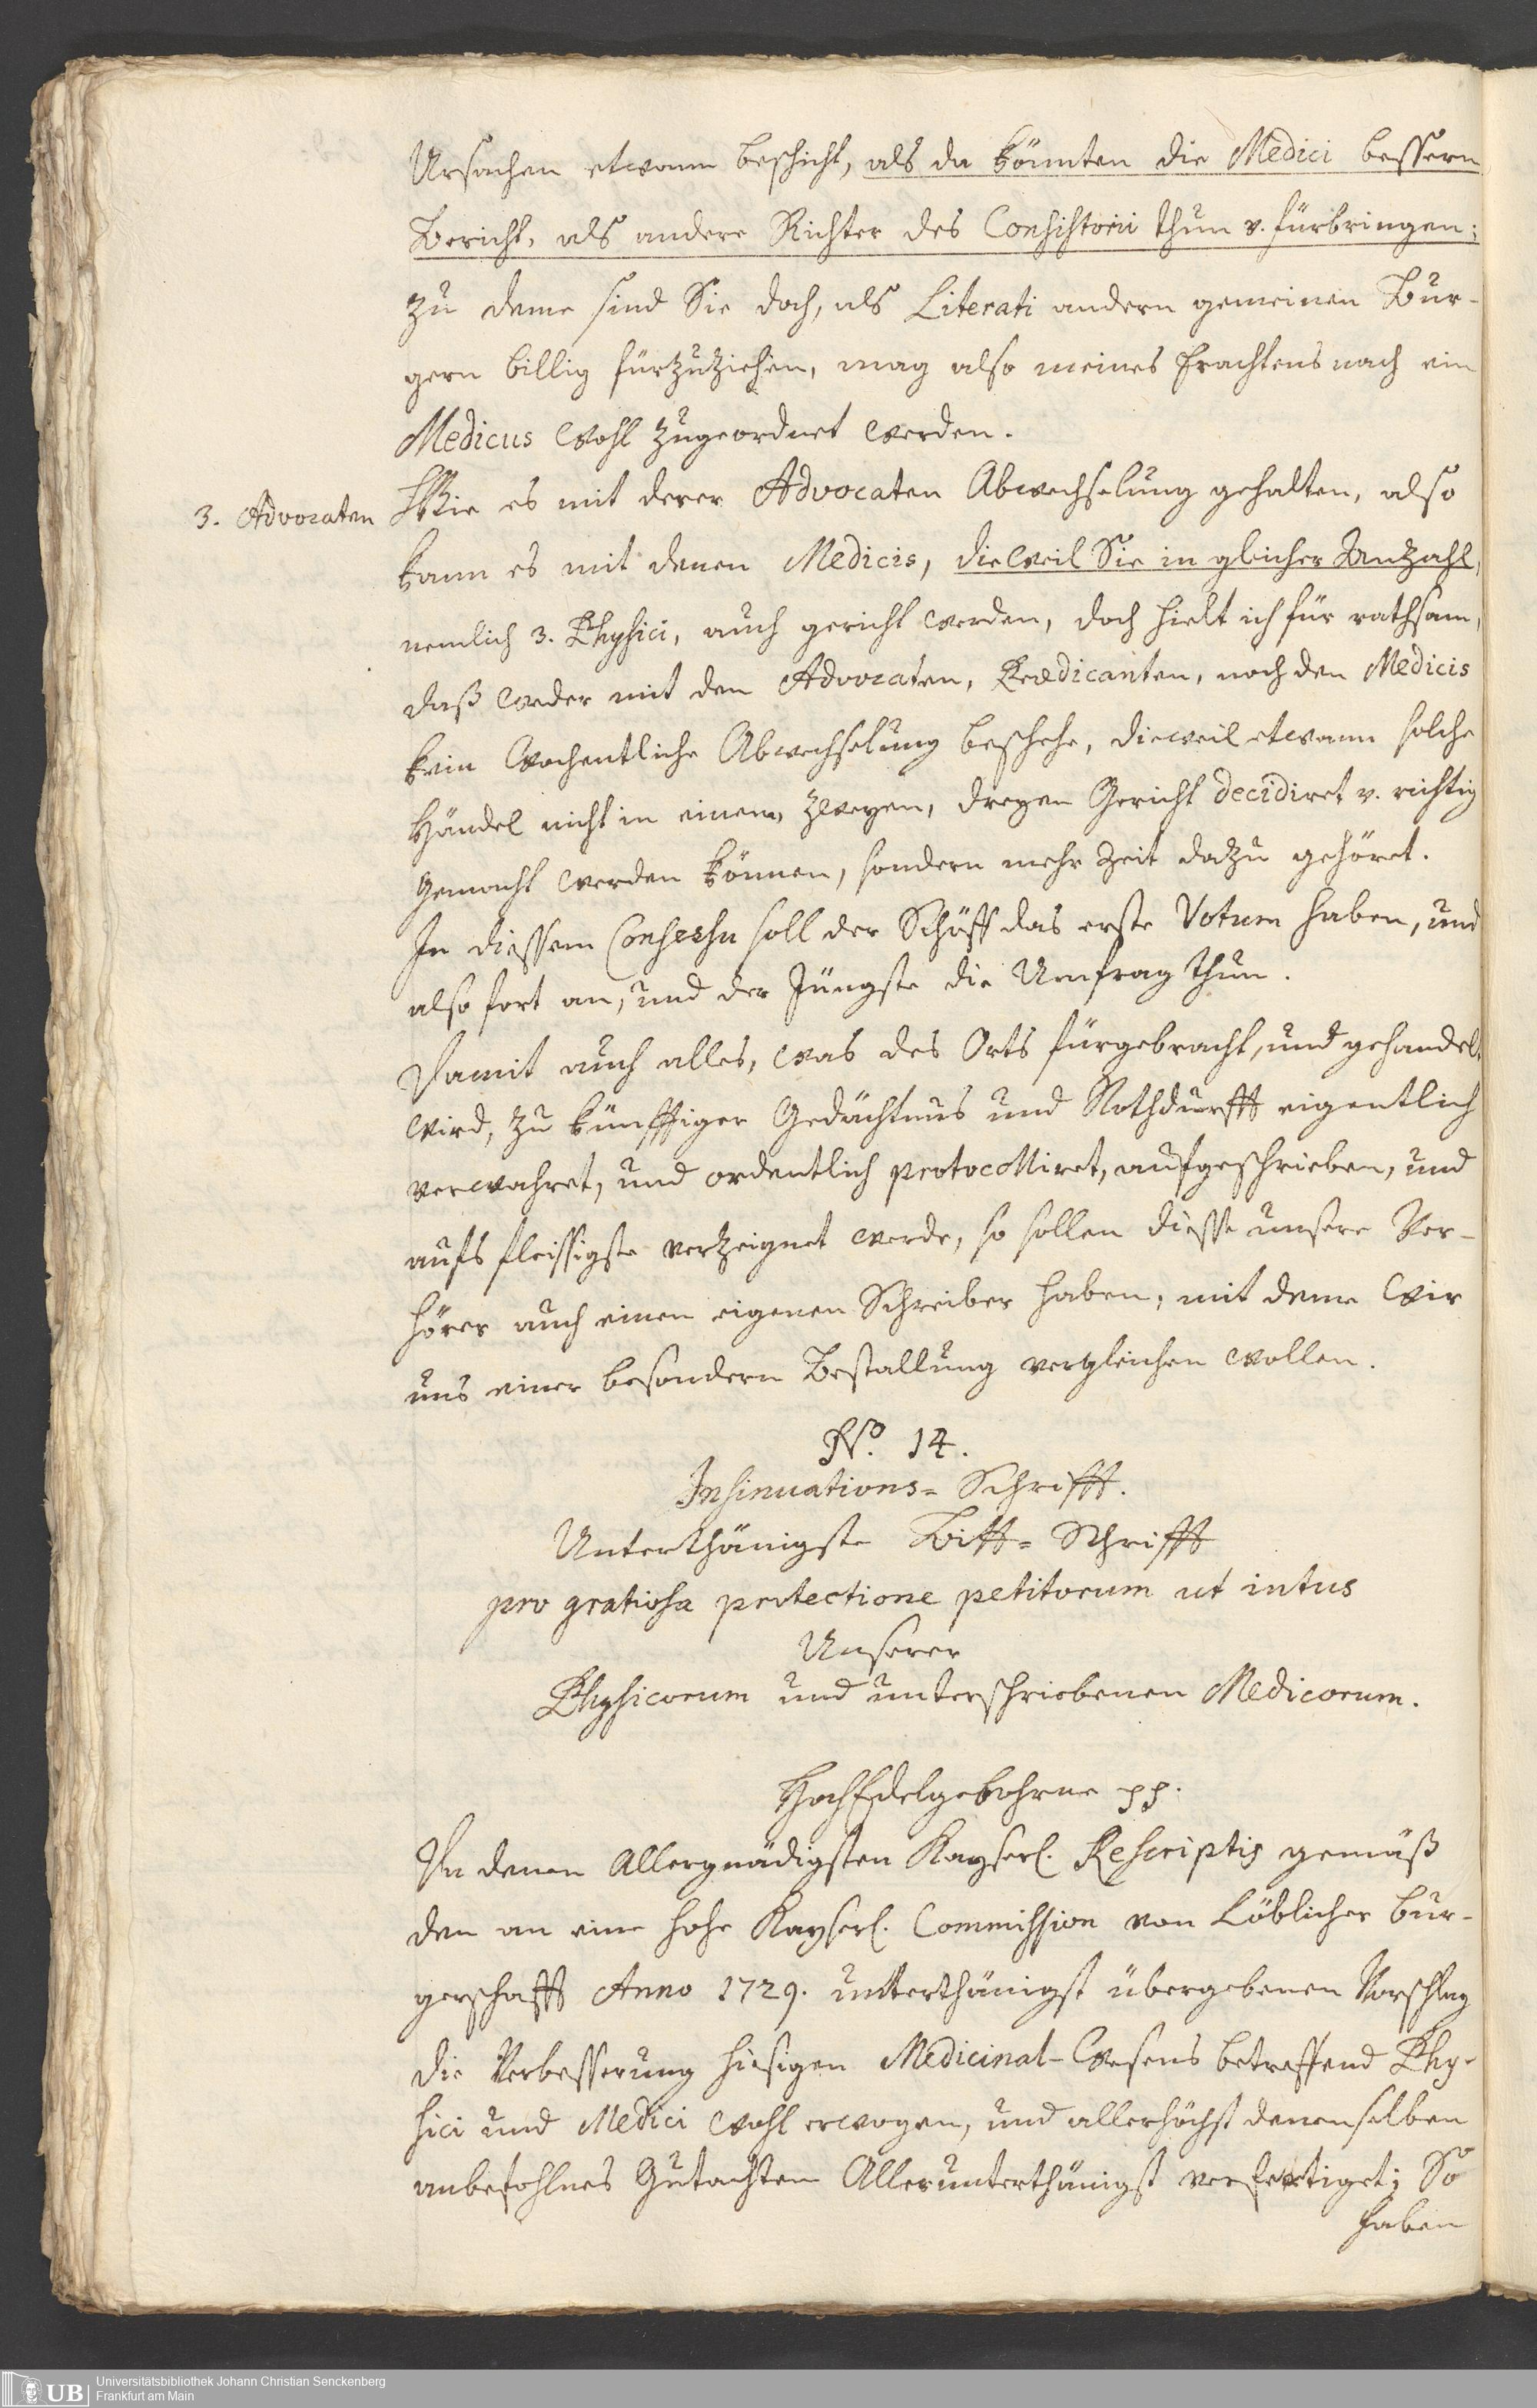 Ursachen etwann beschicht, als da könnten die Medici bessern
Bericht, als andere Richter des Consistorii thun v. fürbringen;
zu deme sind Sie doch, als Literati andern gemeinen Bur-
gern billig fürzuziehen, mag also meines Erachtens nach ein
Medicus wohl zugeordnet werden.
3. Advocaten
Wie es mit derer Advocaten Abwechselung gehalten, also
kann es mit denen Medicis, dieweil Sie in gleicher Anzahl,
nemlich 3. Physici, auch gericht werden, doch hielt ich für rathsam,
daß weder mit den Advocaten, Praedicanten, noch den Medicis
kein Wochentliche Abwechselung beschehe, dieweil etwann solche
Händel nicht in einem, zweyen, dreyen Gericht decidiret v. richtig
gemacht werden können, sondern mehr Zeit dazu gehöret.
In diessem Consessu soll der Schöff das erste Votum haben, und
also fort an, und der Jüngste die Umfrag thun.
Damit auch alles, was des Orts fürgebracht, und gehandelt
wird, zu künfftiger Gedächtnus und Nothdurfft eigentlich
verwahret, und ordentlich protocolliret, aufgeschrieben, und
aufs fleissigste verzeignet werde, so sollen diesse unsere Ver-
hörer auch einen eigenen Schreiber haben, mit deme Wir
uns einer besondern Bestallung vergleichen wollen.
No. 14.
Insinuations= Schrifft.
Unterthänigste Bitt= Schrifft
pro gratiosa protectione petitorum ut intus
Unserer
Physicorum und unterschriebenen Medicorum.
HochEdelgebohrne pp.
Da denen Allergnädigsten Kayserl. Rescriptis gemäß
den an eine hohe Kayserl. Commission von Löblicher Bur-
gerschafft Anno 1729. unterthänigst übergebenen Vorschlag
die Verbesserung hiesigen Medicinal-Wesens betreffend Phy-
sici und Medici wohl erwogen, und allerhöchst denenselben
anbefohlnes Gutachten Allerunterthänigst verfertiget; So
haben
UB
Universitätsbibliothek Johann Christian Senckenberg
Frankfurt am Main